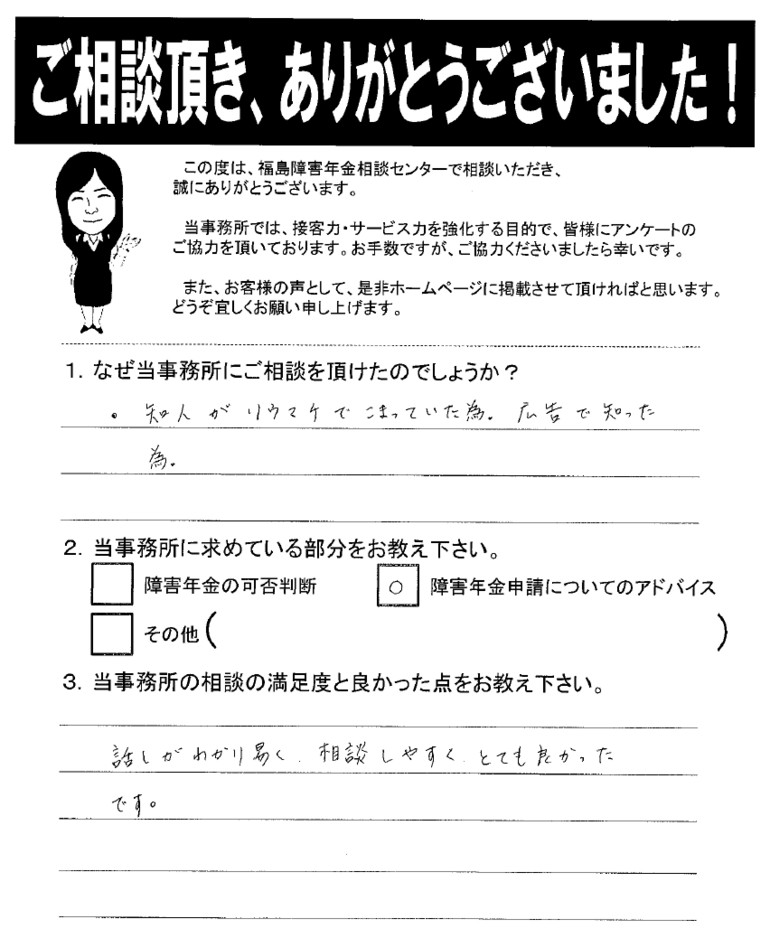 ご相談頂き、ありがとうございました！
この度は、福島障害年金相談センターで相談いただき、
誠にありがとうございます。
当事務所では、接客力・サービス力を強化する目的で、皆様にアンケートの
ご協力を頂いております。お手数ですが、ご協力くださいましたら幸いです。
また、お客様の声として、是非ホームページに掲載させて頂ければと思います。
どうぞ宜しくお願い申し上げます。
1. なぜ当事務所にご相談を頂けたのでしょうか？
・知人がリウマチでこまっていた為。広告で知った
為。
2. 当事務所に求めている部分をお教え下さい。
障害年金の可否判断 ○ 障害年金申請についてのアドバイス
その他（ ）
3. 当事務所の相談の満足度と良かった点をお教え下さい。
話しがわかり易く、相談しやすく、とても良かった
です。